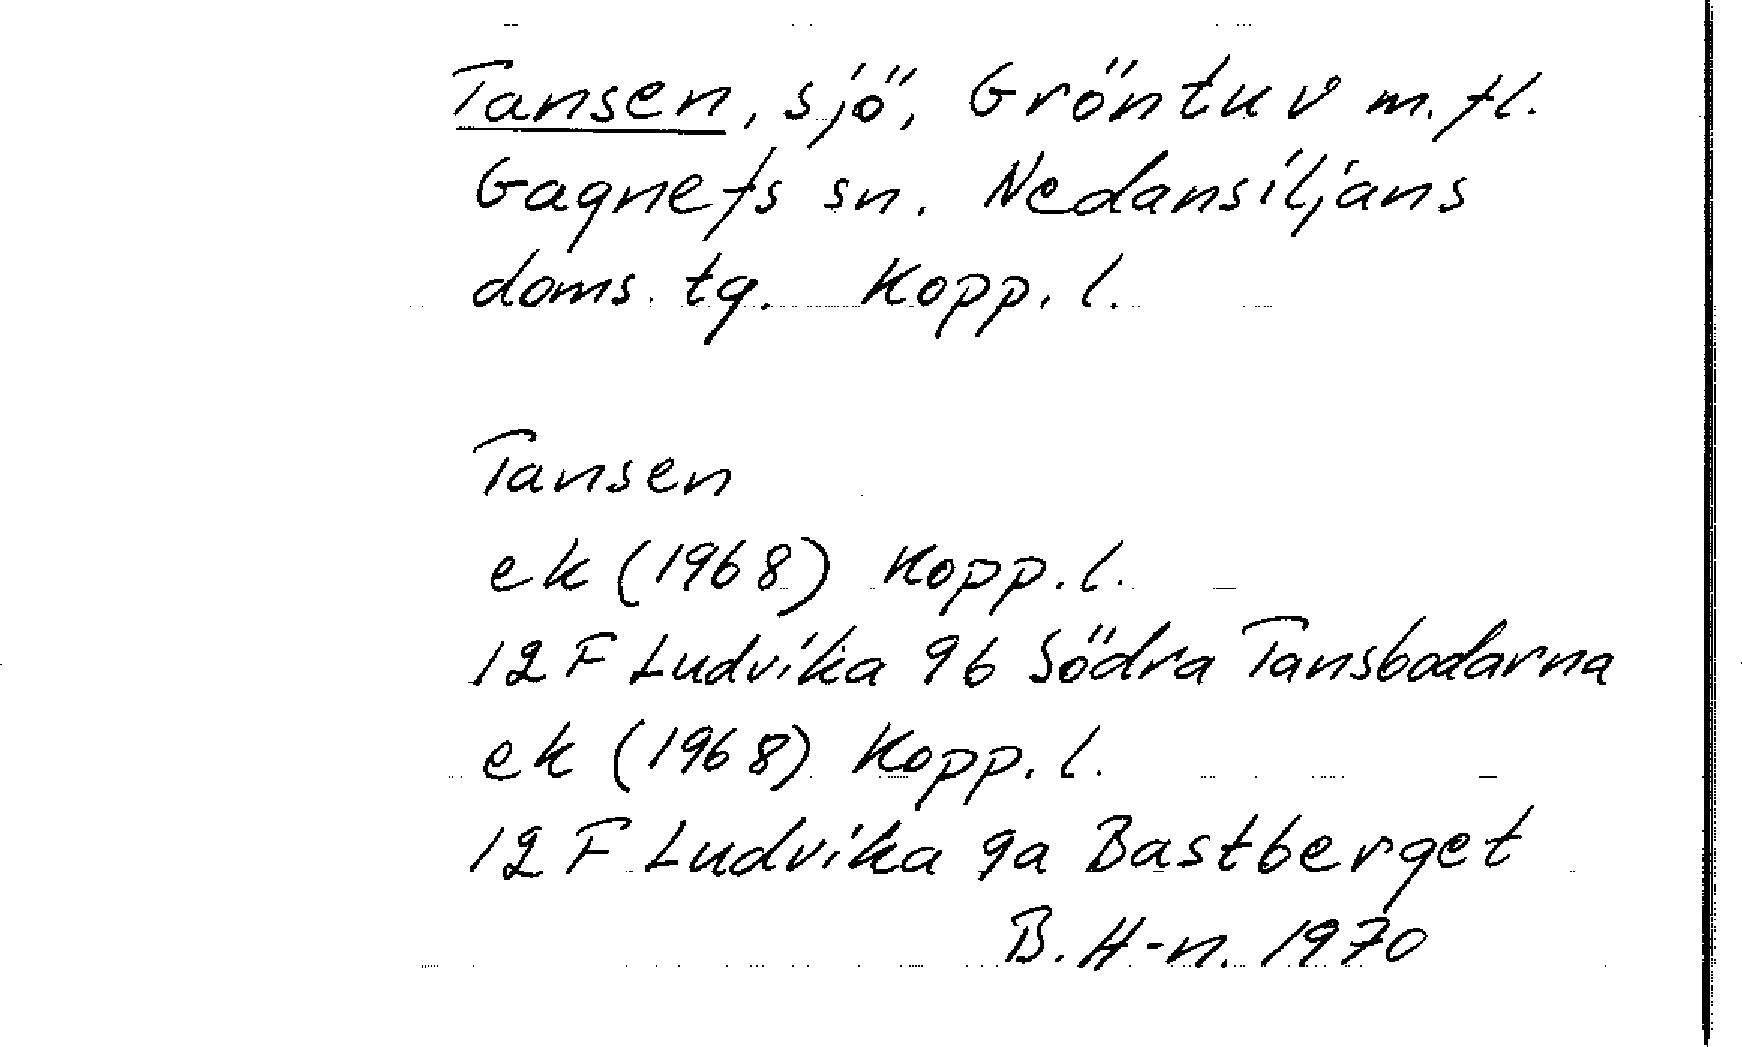 Tansen, sjö, Gröntuv m.fl.
Gagnefs sn. Nedansiljans
doms. tg. Kopp. l.
Tansen
ek (1968) Kopp. l.
12 F Ludvika 9b Södra Tansbodarna
ek (1968) Kopp. l.
12 F Ludvika 9a Bastberget
B. H-n. 1970